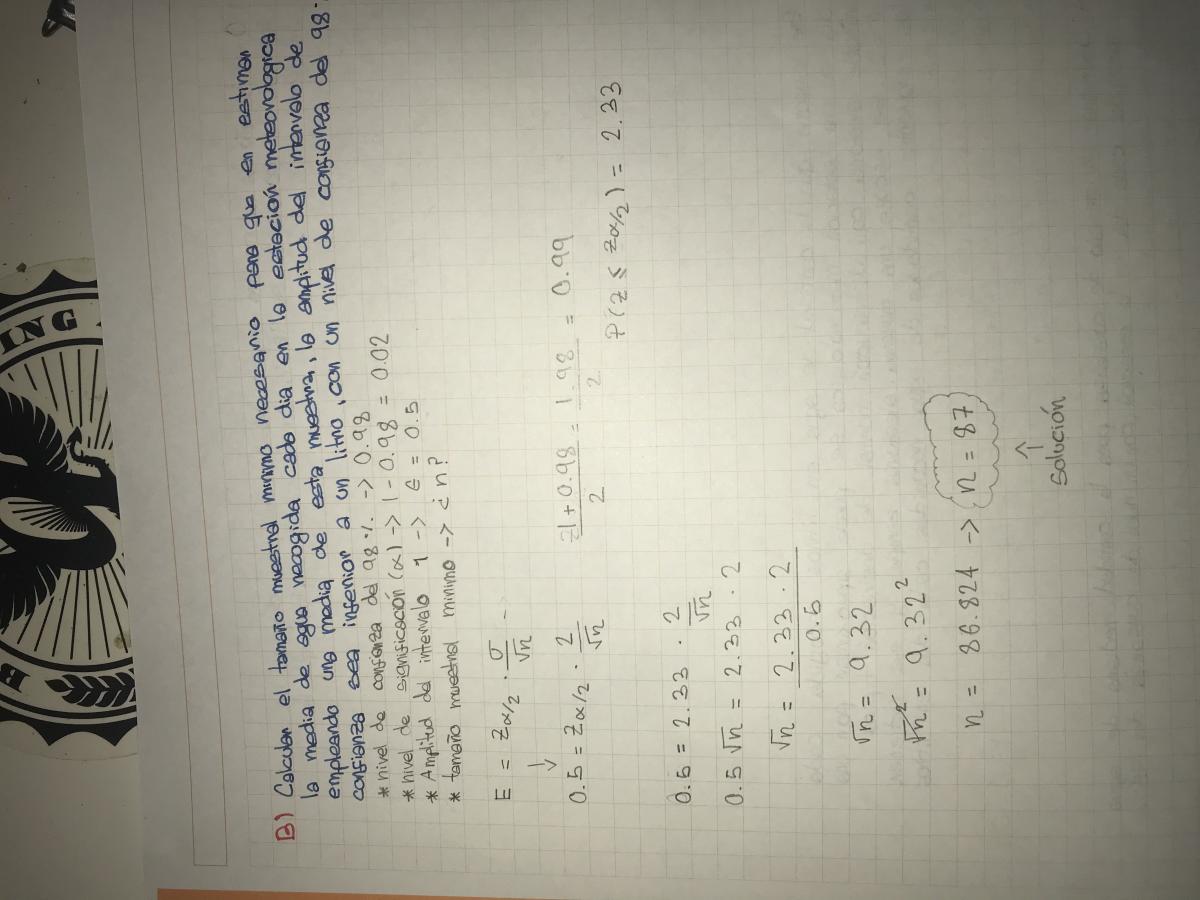 B) Calcular el tamaño muestral mínimo necesario para que en estiman
la media de agua recogida cada día en la estación meteorologica
empleando una media de esta muestra, la amplitud del intervalo de
confianza sea inferior a un litro, con un nivel de confianza del 98.
* nivel de confianza del 98% -> 0.98
* nivel de significación (α) -> 1 - 0.98 = 0.02
* Amplitud del intervalo 1 -> E = 0.5
* tamaño muestral minimo -> ¿n?
E = Zα/2 · σ/√n
↓
0.5 = Zα/2 · 2/√n
z1 + 0.98 / 2 = 1.98 / 2 = 0.99
P(Z ≤ Zα/2) = 2.33
0.5 = 2.33 · 2/√n
0.5 √n = 2.33 · 2
√n = 2.33 · 2 / 0.5
√n = 9.32
√n² = 9.32²
n = 86.824 -> n = 87
↑
Solución
ING
B